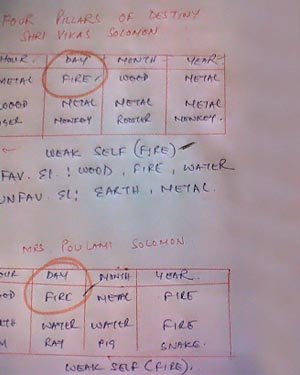 FOUR PILLARS OF DESTINY
SHRI VIKAS SOLOMON
HOUR DAY MONTH YEAR
METAL FIRE WOOD METAL
WOOD METAL METAL METAL
MONKEY ROOSTER MONKEY
WEAK SELF (FIRE)
FAV. El : WOOD, FIRE, WATER
UNFAV. El : EARTH, METAL.
MRS. POULAMI SOLOMON
DAY MONTH YEAR
FIRE METAL FIRE
WATER WATER FIRE
RAT PIG SNAKE
WEAK SELF (FIRE).